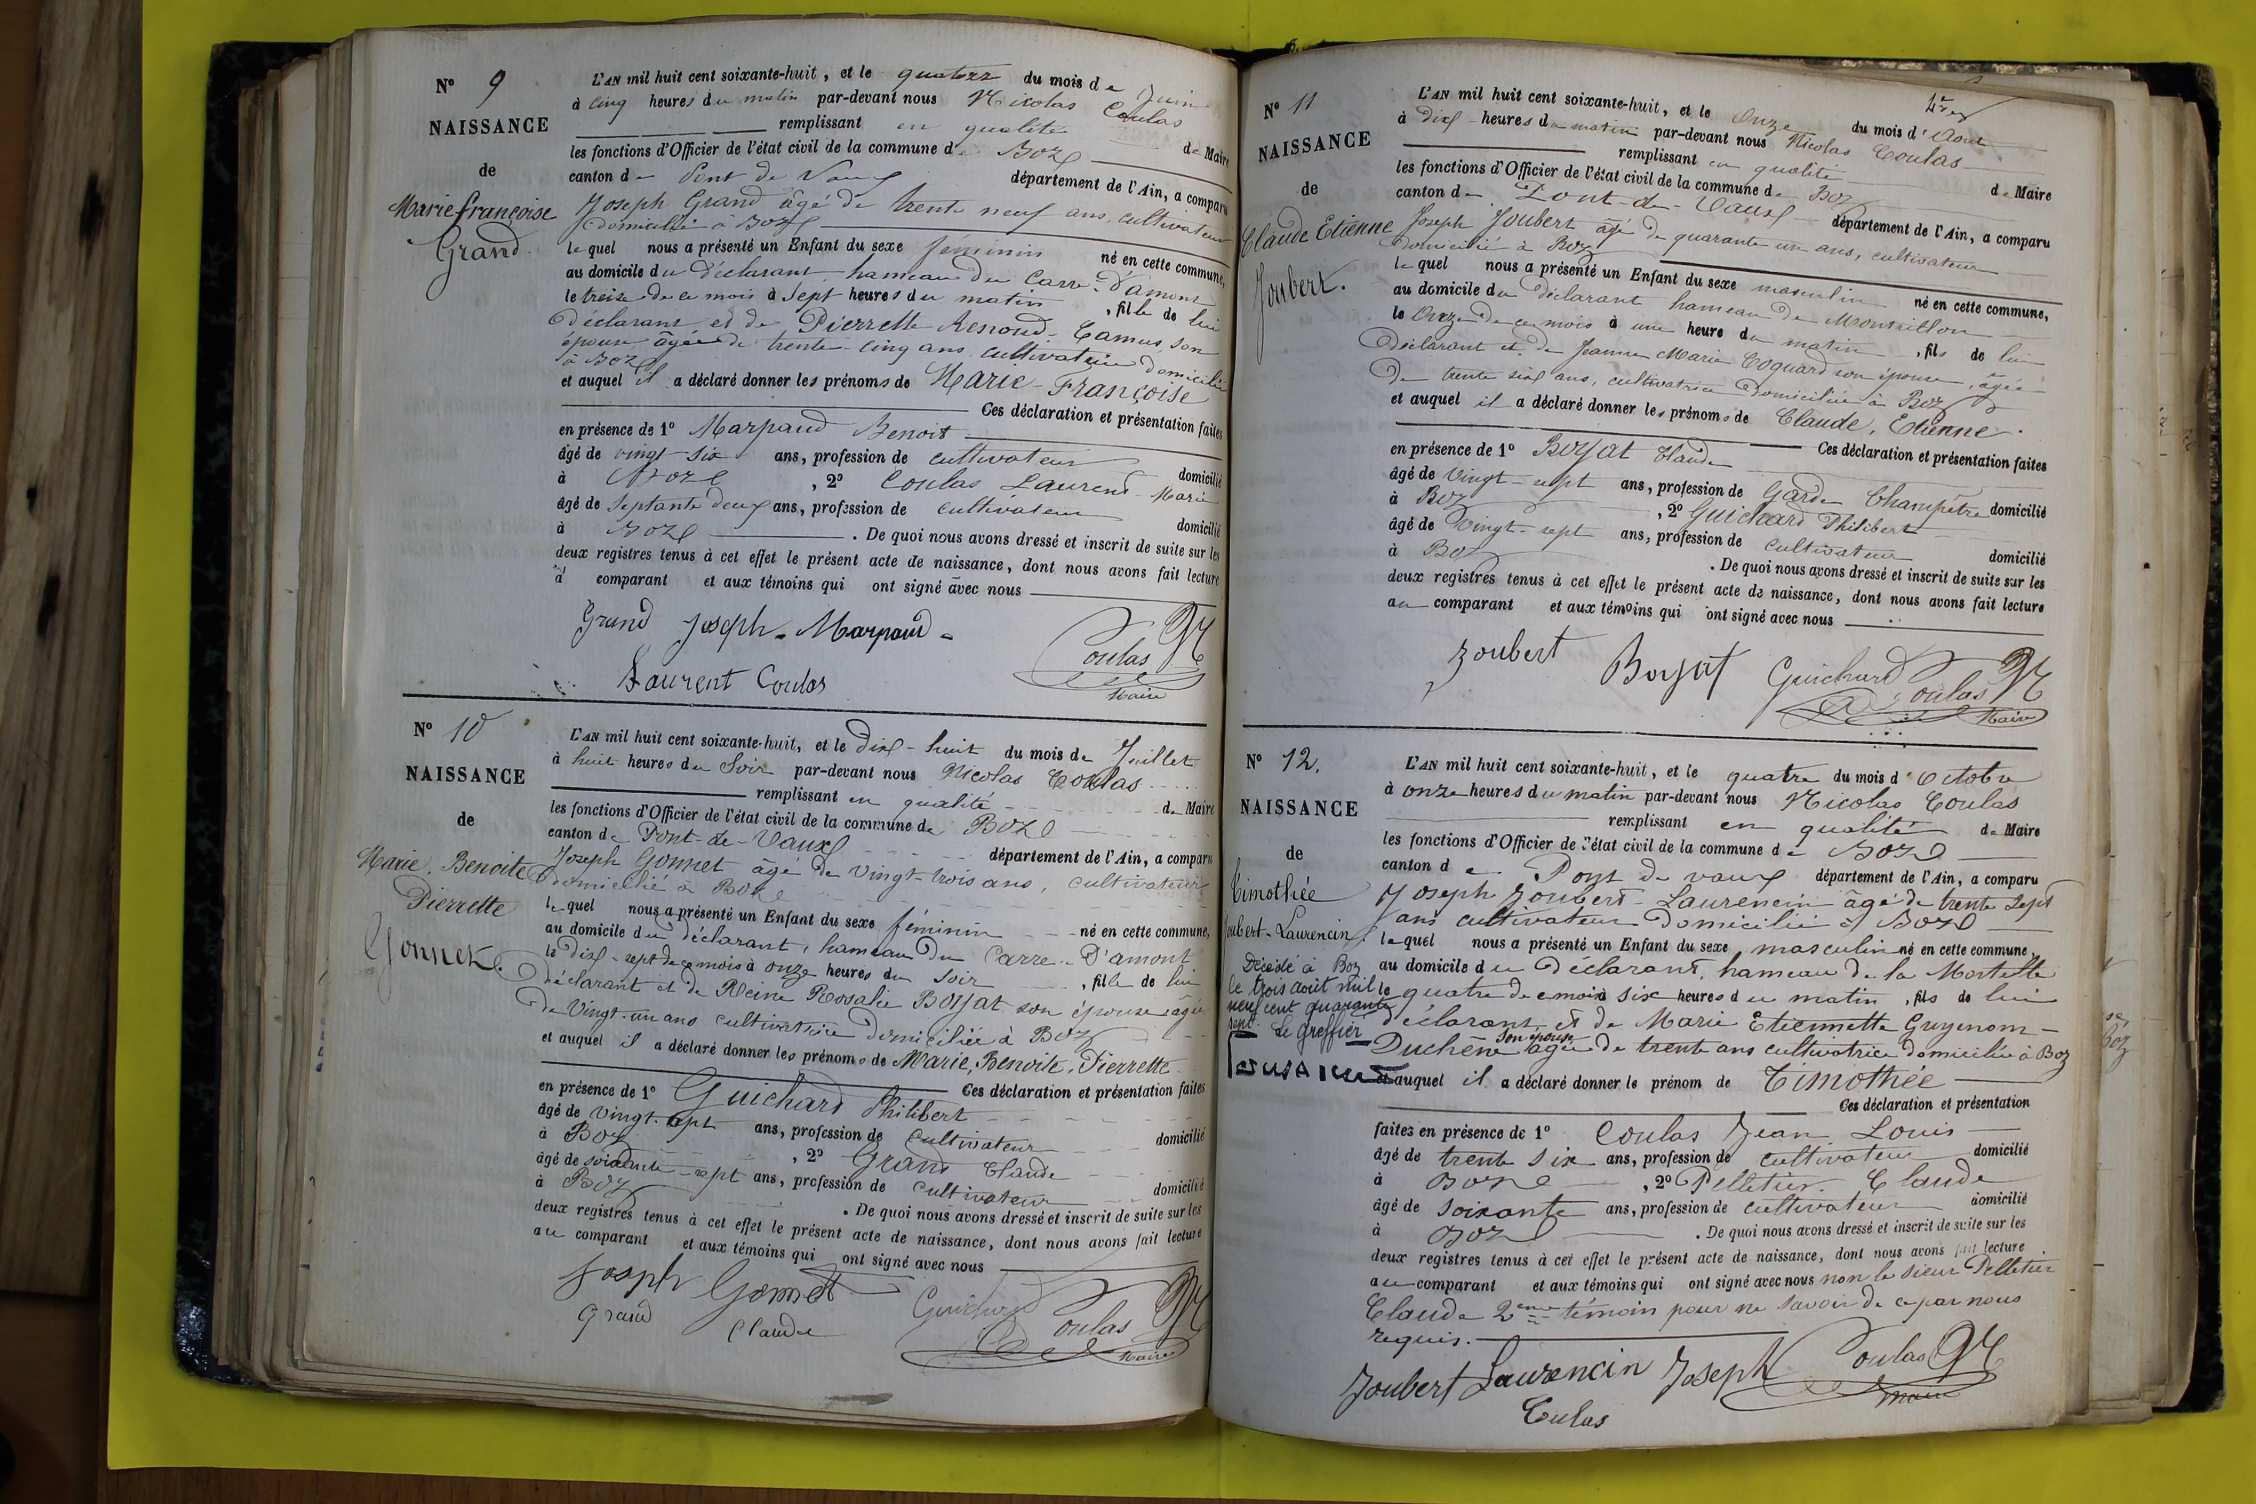 N° 9
NAISSANCE
de
Marie françoise
Grand
L'AN mil huit cent soixante-huit, et le quatorze du mois de Juin
à cinq heures du matin par-devant nous Nicolas Coulas
remplissant en qualité de Maire
les fonctions d'Officier de l'état civil de la commune de Boz
canton de Pont de Vaux département de l'Ain, a comparu
Joseph Grand âgé de trente neuf ans, cultivateur
domicilié à Boz
lequel nous a présenté un Enfant du sexe feminin né en cette commune,
au domicile du déclarant hameau du Carre D'amont
le treize de ce mois à Sept heures du matin, fille de lui
déclarant et de Pierrette Renoud-Camus son
épouse âgée de trente-cinq ans cultivatrice domiciliée
à Boz
et auquel il a déclaré donner les prénoms de Marie-Françoise
Ces déclaration et présentation faites
en présence de 1° Marpaud Benoit
âgé de vingt-six ans, profession de cultivateur domicilié
à Boz, 2° Coulas Laurent-Marie
âgé de Septante deux ans, profession de cultivateur domicilié
à Boz. De quoi nous avons dressé et inscrit de suite sur les
deux registres tenus à cet effet le présent acte de naissance, dont nous avons fait lecture
à comparant et aux témoins qui ont signé avec nous
Grand Joseph Marpaud
Laurent Coulas
Coulas N
Maire
N° 10
NAISSANCE
de
Marie, Benoite
Pierrette
Gonnet.
L'AN mil huit cent soixante-huit, et le Dix-huit du mois de Juillet
à huit heures du Soir par-devant nous Nicolas Coulas
remplissant en qualité de Maire
les fonctions d'Officier de l'état civil de la commune de Boz
canton de Pont-de-Vaux département de l'Ain, a comparu
Joseph Gonnet âgé de vingt trois ans, cultivateur
domicilié à Boz
lequel nous a présenté un Enfant du sexe féminin né en cette commune,
au domicile du déclarant, hameau du Carre-D'amont
le dix-sept de ce mois à onze heures du soir, fille de lui
déclarant et de Reine Rosalie Boyat son épouse âgée
de Vingt-un ans cultivatrice domiciliée à Boz
et auquel il a déclaré donner les prénoms de Marie, Benoite, Pierrette
Ces déclaration et présentation faites
en présence de 1° Guichard Philibert
âgé de vingt-sept ans, profession de cultivateur domicilié
à Boz, 2° Grand Claude
âgé de soixante-sept ans, profession de cultivateur domicilié
à Boz. De quoi nous avons dressé et inscrit de suite sur les
deux registres tenus à cet effet le présent acte de naissance, dont nous avons fait lecture
au comparant et aux témoins qui ont signé avec nous
Joseph Gonnet Guichard Coulas N
Grand Claude Maire
N° 11
NAISSANCE
de
Claude Etienne
Joubert.
L'AN mil huit cent soixante-huit, et le Onze du mois d'Aout
à dix heures du matin par-devant nous Nicolas Coulas
remplissant en qualité de Maire
les fonctions d'Officier de l'état civil de la commune de Boz
canton de Pont-de-Vaux département de l'Ain, a comparu
Joseph Joubert âgé de quarante un ans, cultivateur
domicilié à Boz
lequel nous a présenté un Enfant du sexe masculin né en cette commune,
au domicile du déclarant hameau de Montrillon
le Onze de ce mois à une heure du matin, fils de lui
déclarant et de Jeanne Marie Coquard son épouse, âgée
de trente six ans, cultivatrice domiciliée à Boz
et auquel il a déclaré donner les prénoms de Claude, Etienne.
Ces déclaration et présentation faites
en présence de 1° Boyat Claude
âgé de Vingt-sept ans, profession de Garde Champêtre domicilié
à Boz, 2° Guichard Philibert
âgé de Vingt-sept ans, profession de cultivateur domicilié
à Boz. De quoi nous avons dressé et inscrit de suite sur les
deux registres tenus à cet effet le présent acte de naissance, dont nous avons fait lecture
au comparant et aux témoins qui ont signé avec nous
Joubert Boyat Guichard Coulas N
Maire
N° 12.
NAISSANCE
de
Timothée
Joubert-Laurencin.
Décédé à Boz
le trois août mil
neuf cent quarante
sept. Le Greffier
L'AN mil huit cent soixante-huit, et le quatre du mois d'Octobre
à onze heures du matin par-devant nous Nicolas Coulas
remplissant en qualité de Maire
les fonctions d'Officier de l'état civil de la commune de Boz
canton de Pont de vaux département de l'Ain, a comparu
Joseph Joubert-Laurencin âgé de trente sept
ans cultivateur domicilié à Boz
lequel nous a présenté un Enfant du sexe masculin né en cette commune,
au domicile du Déclarant, hameau de la Mortelle
le quatre de ce mois à six heures du matin, fils de lui
déclarant et de Marie Etiennette Guyenom-
Duchêne son épouse âgée de trente ans cultivatrice domiciliée à Boz
et auquel il a déclaré donner le prénom de Timothée
Ces déclaration et présentation
faites en présence de 1° Coulas Jean Louis
âgé de trente six ans, profession de cultivateur domicilié
à Boz, 2° Pelletier Claude
âgé de soixante ans, profession de cultivateur domicilié
à Boz. De quoi nous avons dressé et inscrit de suite sur les
deux registres tenus à cet effet le présent acte de naissance, dont nous avons fait lecture
au comparant et aux témoins qui ont signé avec nous non le sieur Pelletier
Claude 2eme témoin pour ne savoir de ce par nous
requis.
Joubert Laurencin Joseph Coulas N
Culas Maire